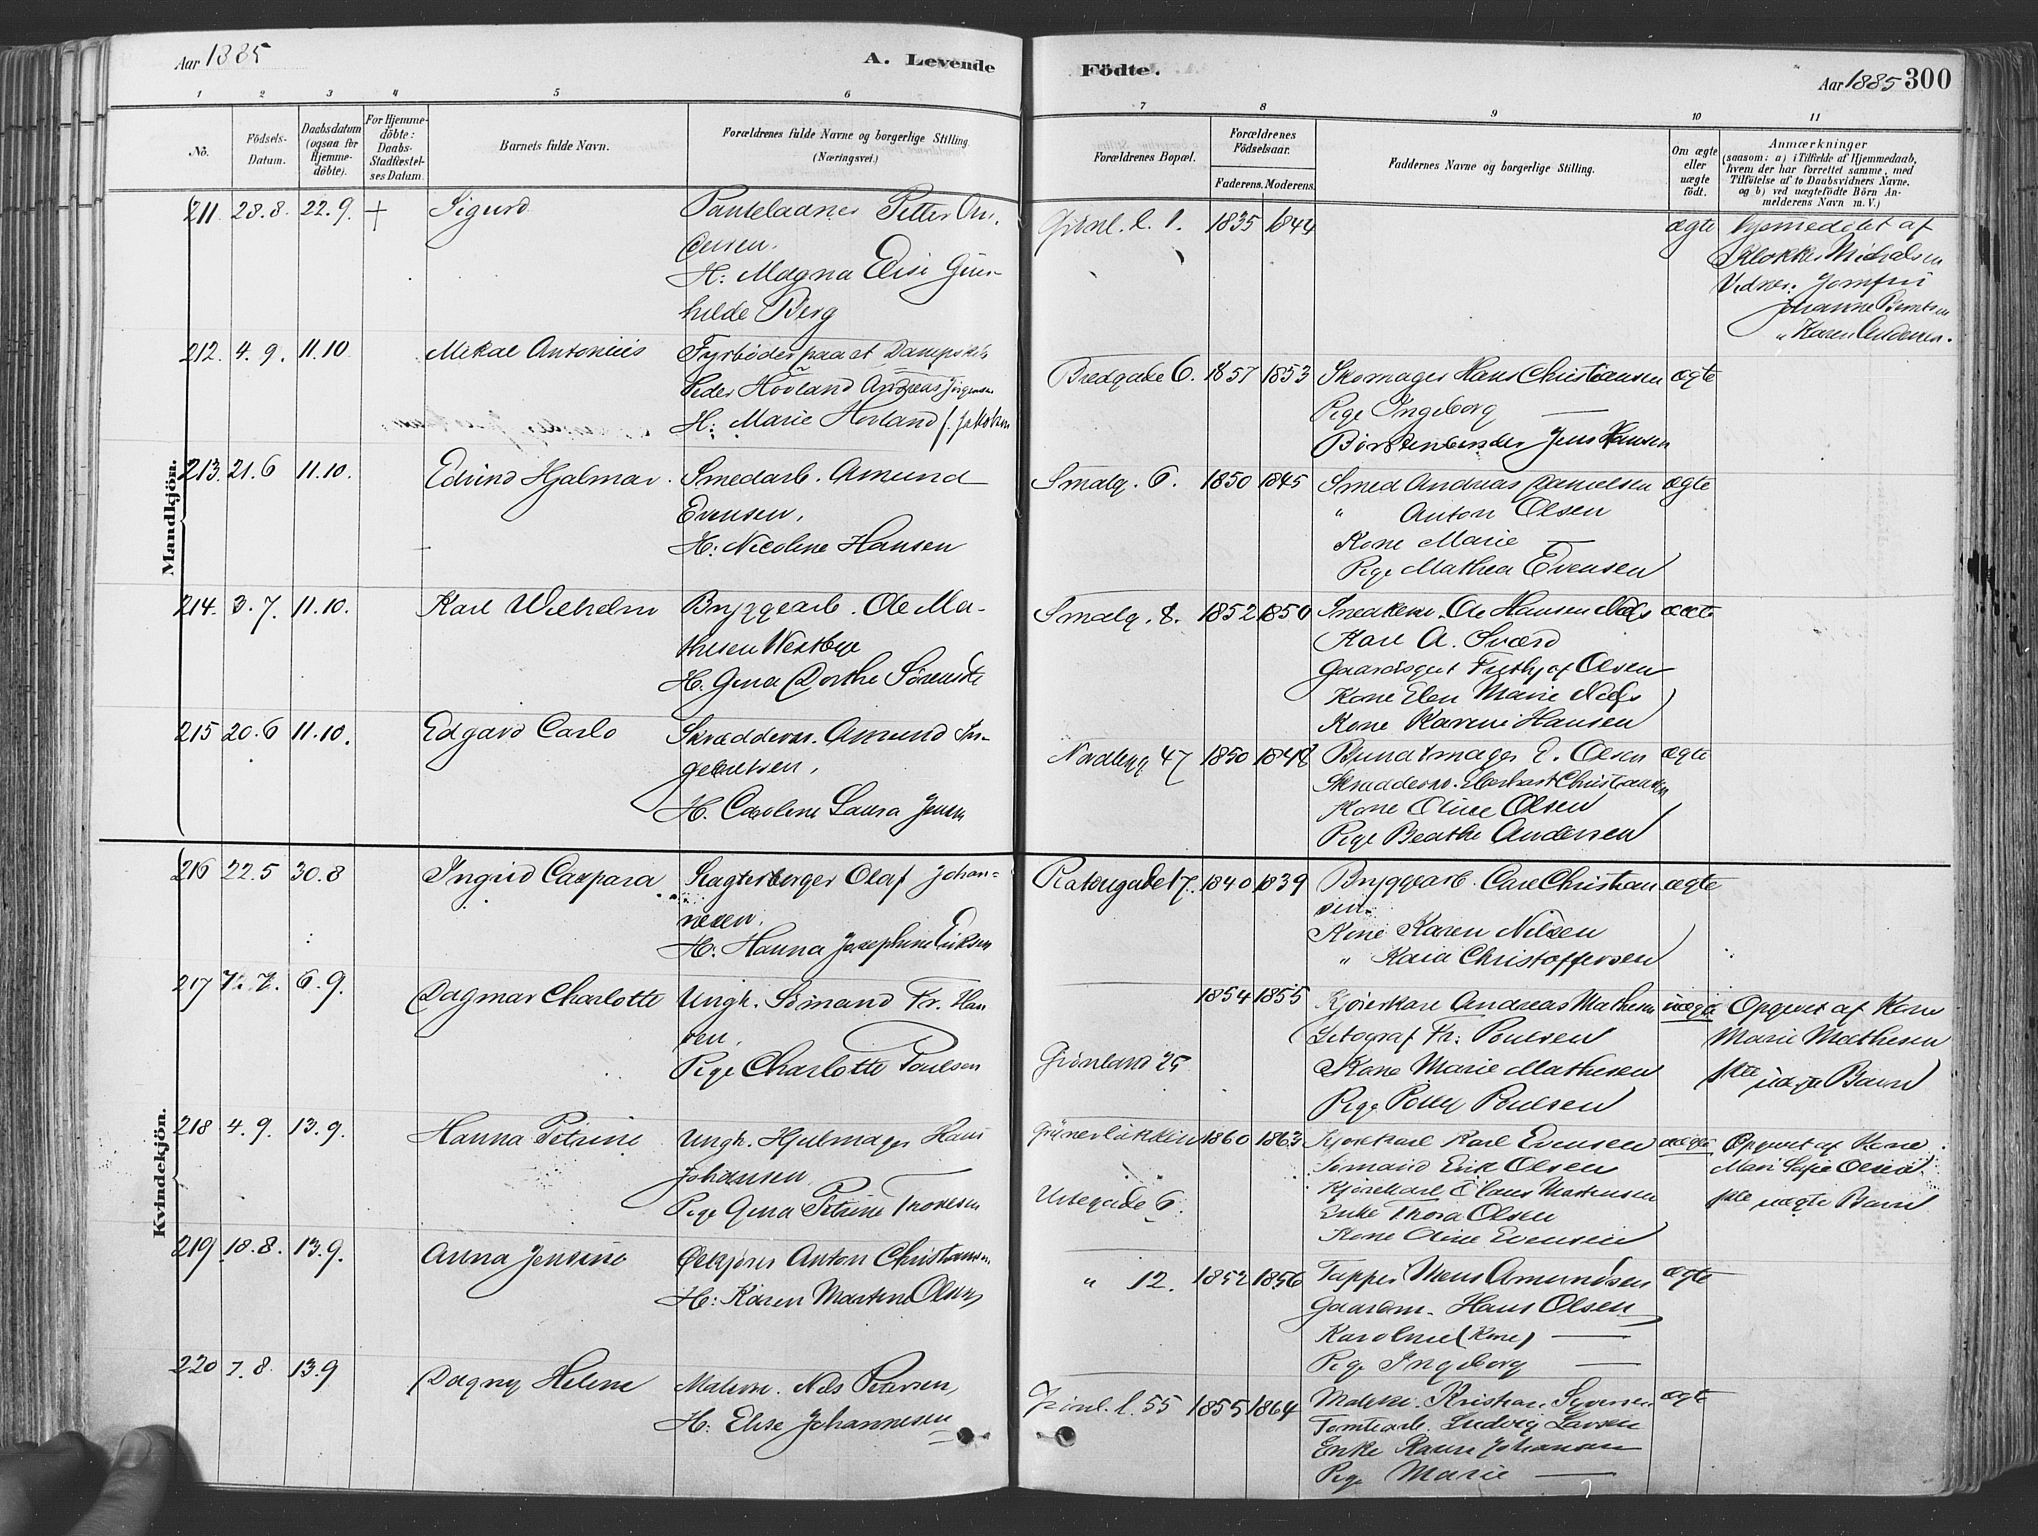 Aar 1885
A. Levende
1 2 3 4 5 6
No.
Födsels-
Datum.
Daabsdatum
(ogsaa for
Hjemme-
döbte).
For Hjemme-
döbte:
Daabs-
Stadfæstel-
ses Datum.
Barnets fulde Navn.
Forældrenes fulde Navne og borgerlige Stilling
(Næringsvei.)
Mandkjön.
211 28.8. 22.9. + Sigurd
Petter An-
H: Magna Elise Gun-
hilde Berg
212. 4.9. 11.10 Mikal Antonius
Fyrbøder paa et Dampskib
Peder Hovland Andreas Jørgensen
H: Marie Hovland f. Jakobsen
213. 21.6 11.10. Edvind Hjalmar.
Smedarb. Amund
Evensen,
H: Nicoline Hansen
214. 3.7. 11.10. Karl Wilhelm
Bryggearb. Ole Ma-
thisen Westbye
H. Gina Dorthe Sørensdt
215 20.6 11.10. Edgard Carlo
Skræddersv. Amund In-
gebretsen,
H. Caroline Laura Jensen
Kvindekjön.
216 22.5 30.8 Ingrid Caspara
Olaf Johan-
nesen,
H: Hanna Josephine Eriksen
217 12.7. 6.9. Dagmar Charlotte
Ungk. Sömand Fr. Han
sen,
Pige Charlotte Poulsen
218 4.9. 13.9. Hanna Petrine
Ungk. Hjulmager Hans
Johansen
Pige Gina Petrine Thoresen
219 18.8. 13.9. Anna Jensine
Ølkjører Anton Christiansen
H: Karen Martine Olsen
220 7.8. 13.9 Dagny Helene
Malersv. Nils Petersen,
H: Elise Johannesen
Födte.
Aar 1885 300
7 8 9 10 11
Forældrenes Bopæl.
Forældrenes
Födselsaar.
Faderens. Moderens.
Faddernes Navne og borgerlige Stilling.
Om ægte
eller
uægte
födt.
Anmærkninger
(saasom: a) i Tilfælde af Hjemmedaab,
hvem der har forrettet samme, med
Tilföielse af to Daabsvidners Navne,
og b) ved uægtefödte Börn An-
melderens Navn m. V.)
Grönl. l. 1. 1835 1844 ægte hjemmedöbt af
Klokker Michalsen
Vidner: Jomfru
Johanne Berntsen
„ Karen Andersen.
Bredgade 6. 1857 1853 Skomager Hans Christiansen ægte
Pige Ingeborg —
Børstenbinder Jens Hansen
Smalg. 6. 1850 1845 Smed Andreas Danielsen ægte
„ Anton Olsen
Kone Marie —
Pige Mathea Evensen
Smalg. 8. 1852 1850 Snedkersv. Ole Hansen ægte
Karl A. Sværd
Gaardsgut Frithjof Olsen
Kone Elen Marie
Kone Karine Hansen
Nordbyg 47 1850 1848 Buntmager E. Olsen ægte
Skræddersv. Eberhart Christiansen
Kone Oline Olsen
Pige Beathe Andersen
Platougade 17. 1840 1839 Bryggearb. Carl Christian ægte
sen.
Kone Karen Nilsen
„ Kaia Christoffersen
1854 1855 Kjørekarl Andreas Mathisen uægte Opgivet af Kone
Litograf Fr. Poulsen Marie Mathesen
Grönland 25 Kone Marie Mathesen 1ste uægte Barn
Pige Polly Poulsen
Grünerløkken 1860 1863 Kjørekarl Karl Evensen uægte Opgivet af Kone
Sömand Erik Olsen Mari Sofie Olsen
Urtegade 6. Kjørekarl Claus Martinsen 1ste uægte Barn
Enke Thora Olsen
Kone Oline Evensen
„ 12. 1852 1856 Tapper Mens Amundsen ægte
Gaardm. Hans Olsen
Karoline (Kone) —
Pige Ingeborg —
Grönl. l. 55 1855 1864 Kristian Syversen ægte
Tomtearb. Ludvig Larsen
Enke Johansen
Pige Marie —